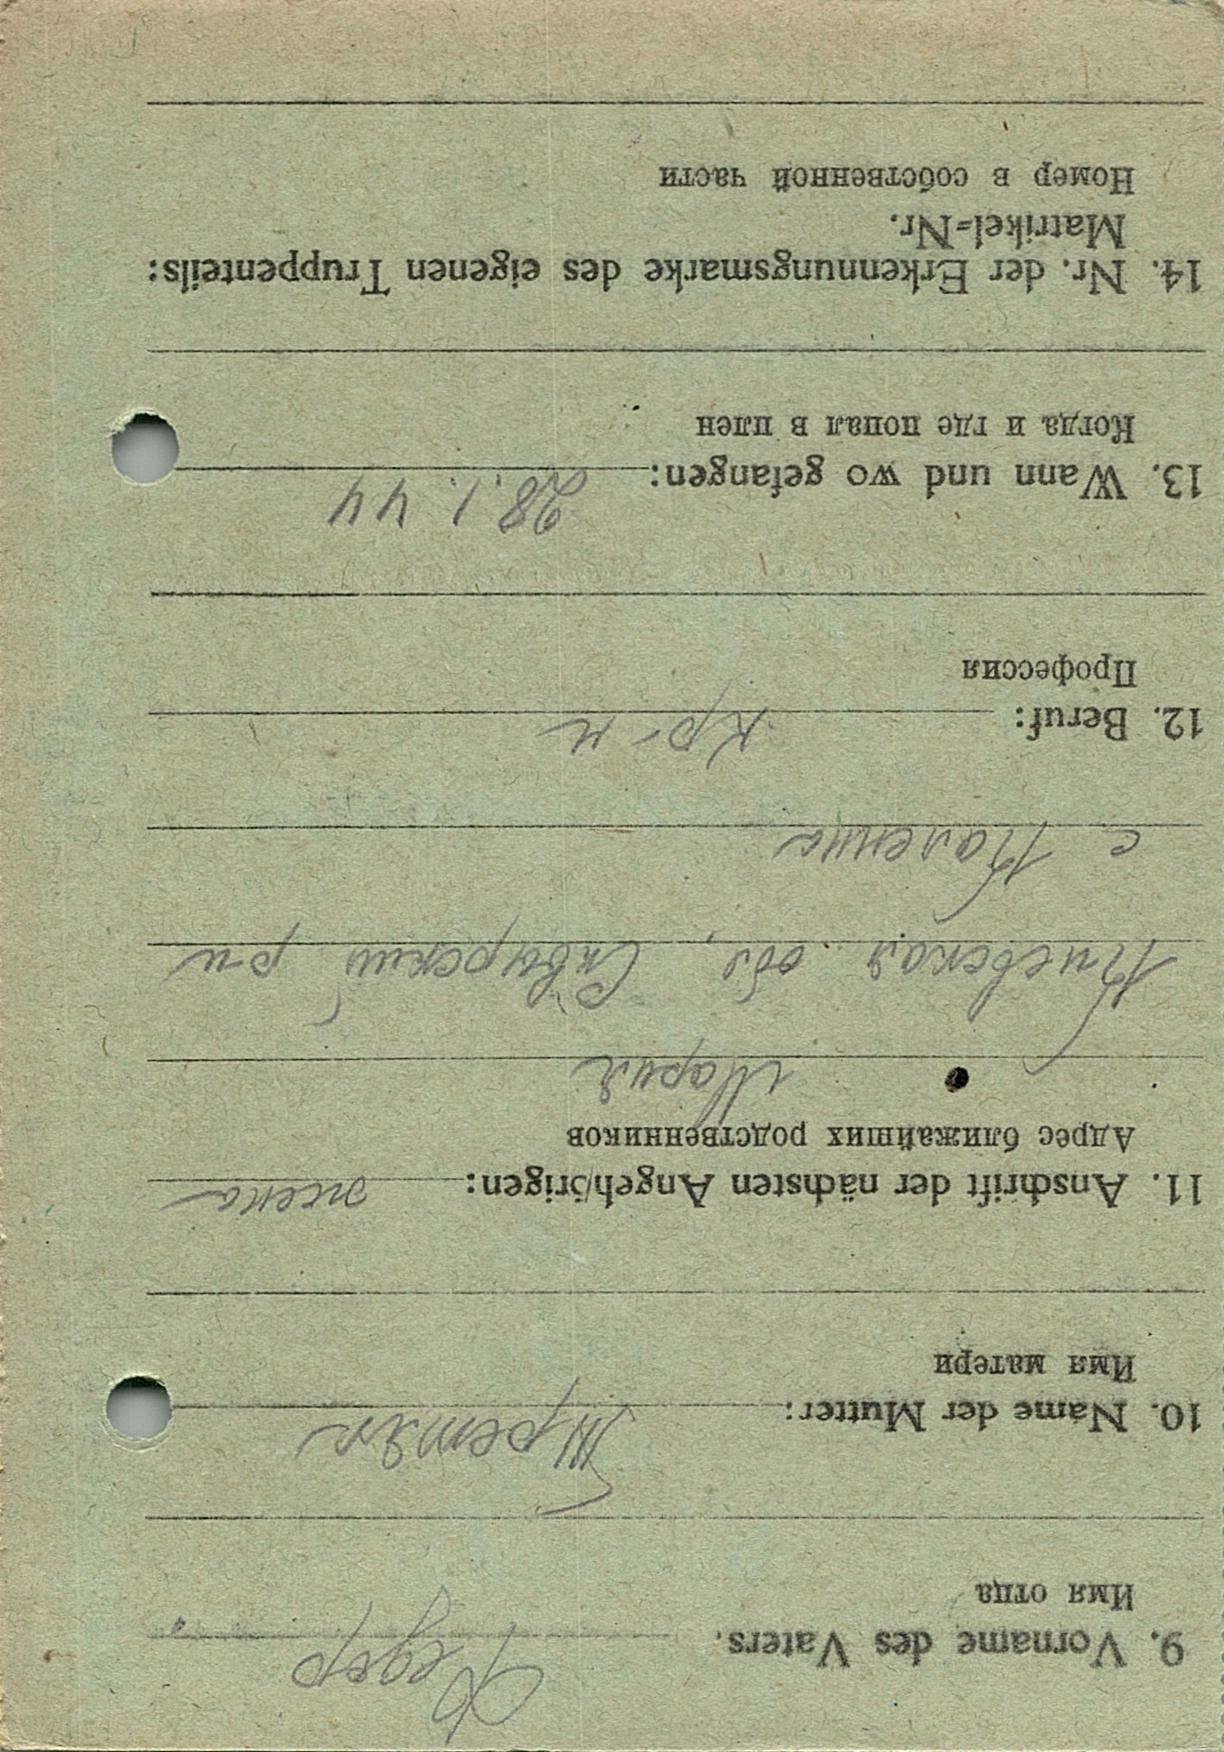 9. Vorname des Vaters. Федор
Имя отца
10. Name der Mutter:
Имя матери
11. Anschrift der nächsten Angehörigen: жена
Адрес ближайших родственников
Мария
Киевская обл, Сквирский р-н
с.
12. Beruf: кр-н
Профессия
13. Wann und wo gefangen: 28.1.44
Когда и где попал в плен
14. Nr. der Erkennungsmarke des eigenen Truppenteils:
Matrikel-Nr.
Номер в собственной части